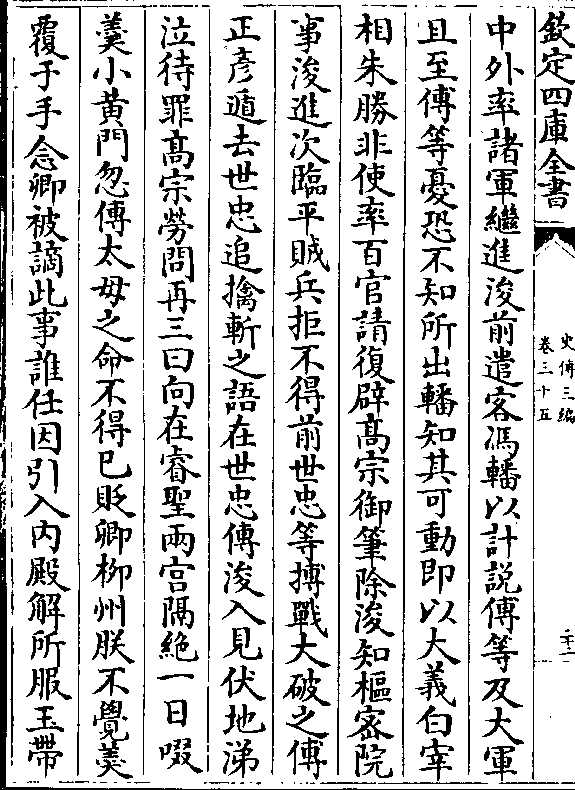 欽定四庫全書
史傳三編
卷三十五
中外率諸軍繼進浚前遣客馮轓以計説傅等及大軍
且至傅等憂恐不知所出轓知其可動即以大義白宰
相朱勝非使率百官請復辟髙宗御筆除浚知樞宻院
事浚進次臨平賊兵拒不得前世忠等搏戰大破之傅
正彦遁去世忠追擒斬之語在世忠傳浚入見伏地涕
泣待罪髙宗勞問再三曰向在睿聖兩宫隔絶一日啜
羮小黄門忽傳太母之命不得已貶卿柳州朕不覺羮
覆于手念卿被謫此事誰任因引入内殿解所服玉帶